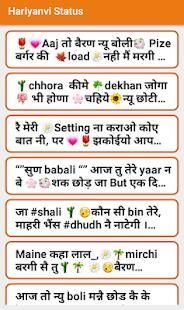 Hariyanvi Status
🌷💗Aaj तो बैरण न्यू बोली💮 Pize
बर्गर की 🍁load🌼 नही मैं मरगी ...
🌵chhora कीमे 🌴dekhan जोगा
🌹 भी होणा 🌸चहिये🌻न्यू छोटी...
रै मेरी 🌼Setting ना कराओ कोए
बात नी, पर 💗🌷झकोईयो आप...
“”सुण babali” आज तु तेरे यार न
बे 🌸🌼शक छोड़ जा But एक दि...
जा #shali 🌵😉कौन सी bin तेरे,
माहरी भैंस #dhudh नै नाटेगी ।...
Maine कहा लाल_,🌼🌴mirchi
बरगी सै तु 🌴🌵😉बैरण...
आज तो न्यु boli मन्नै छोड कै के